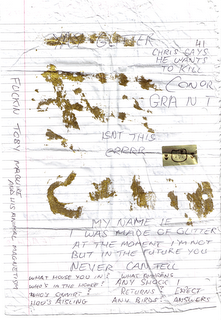 41
CHRIS SAYS
HE WANTS
TO KILL
CONOR
GRANT
ISNT THIS
ERRRR
MY NAME IS
I WAS MADE OF GLITTER
AT THE MOMENT I'M NOT
BUT IN THE FUTURE YOU
NEVER CAN TELL
WHAT HOUSE YOU IN? WHAT
WHO'S IN THE HOUSE? ANY SHOCK
WHO'S RETURNS?
ANY BIRDS? ANSWERS
FUCKIN TOBY MAGUIRE
AND HIS ANIMAL MAGNETISM